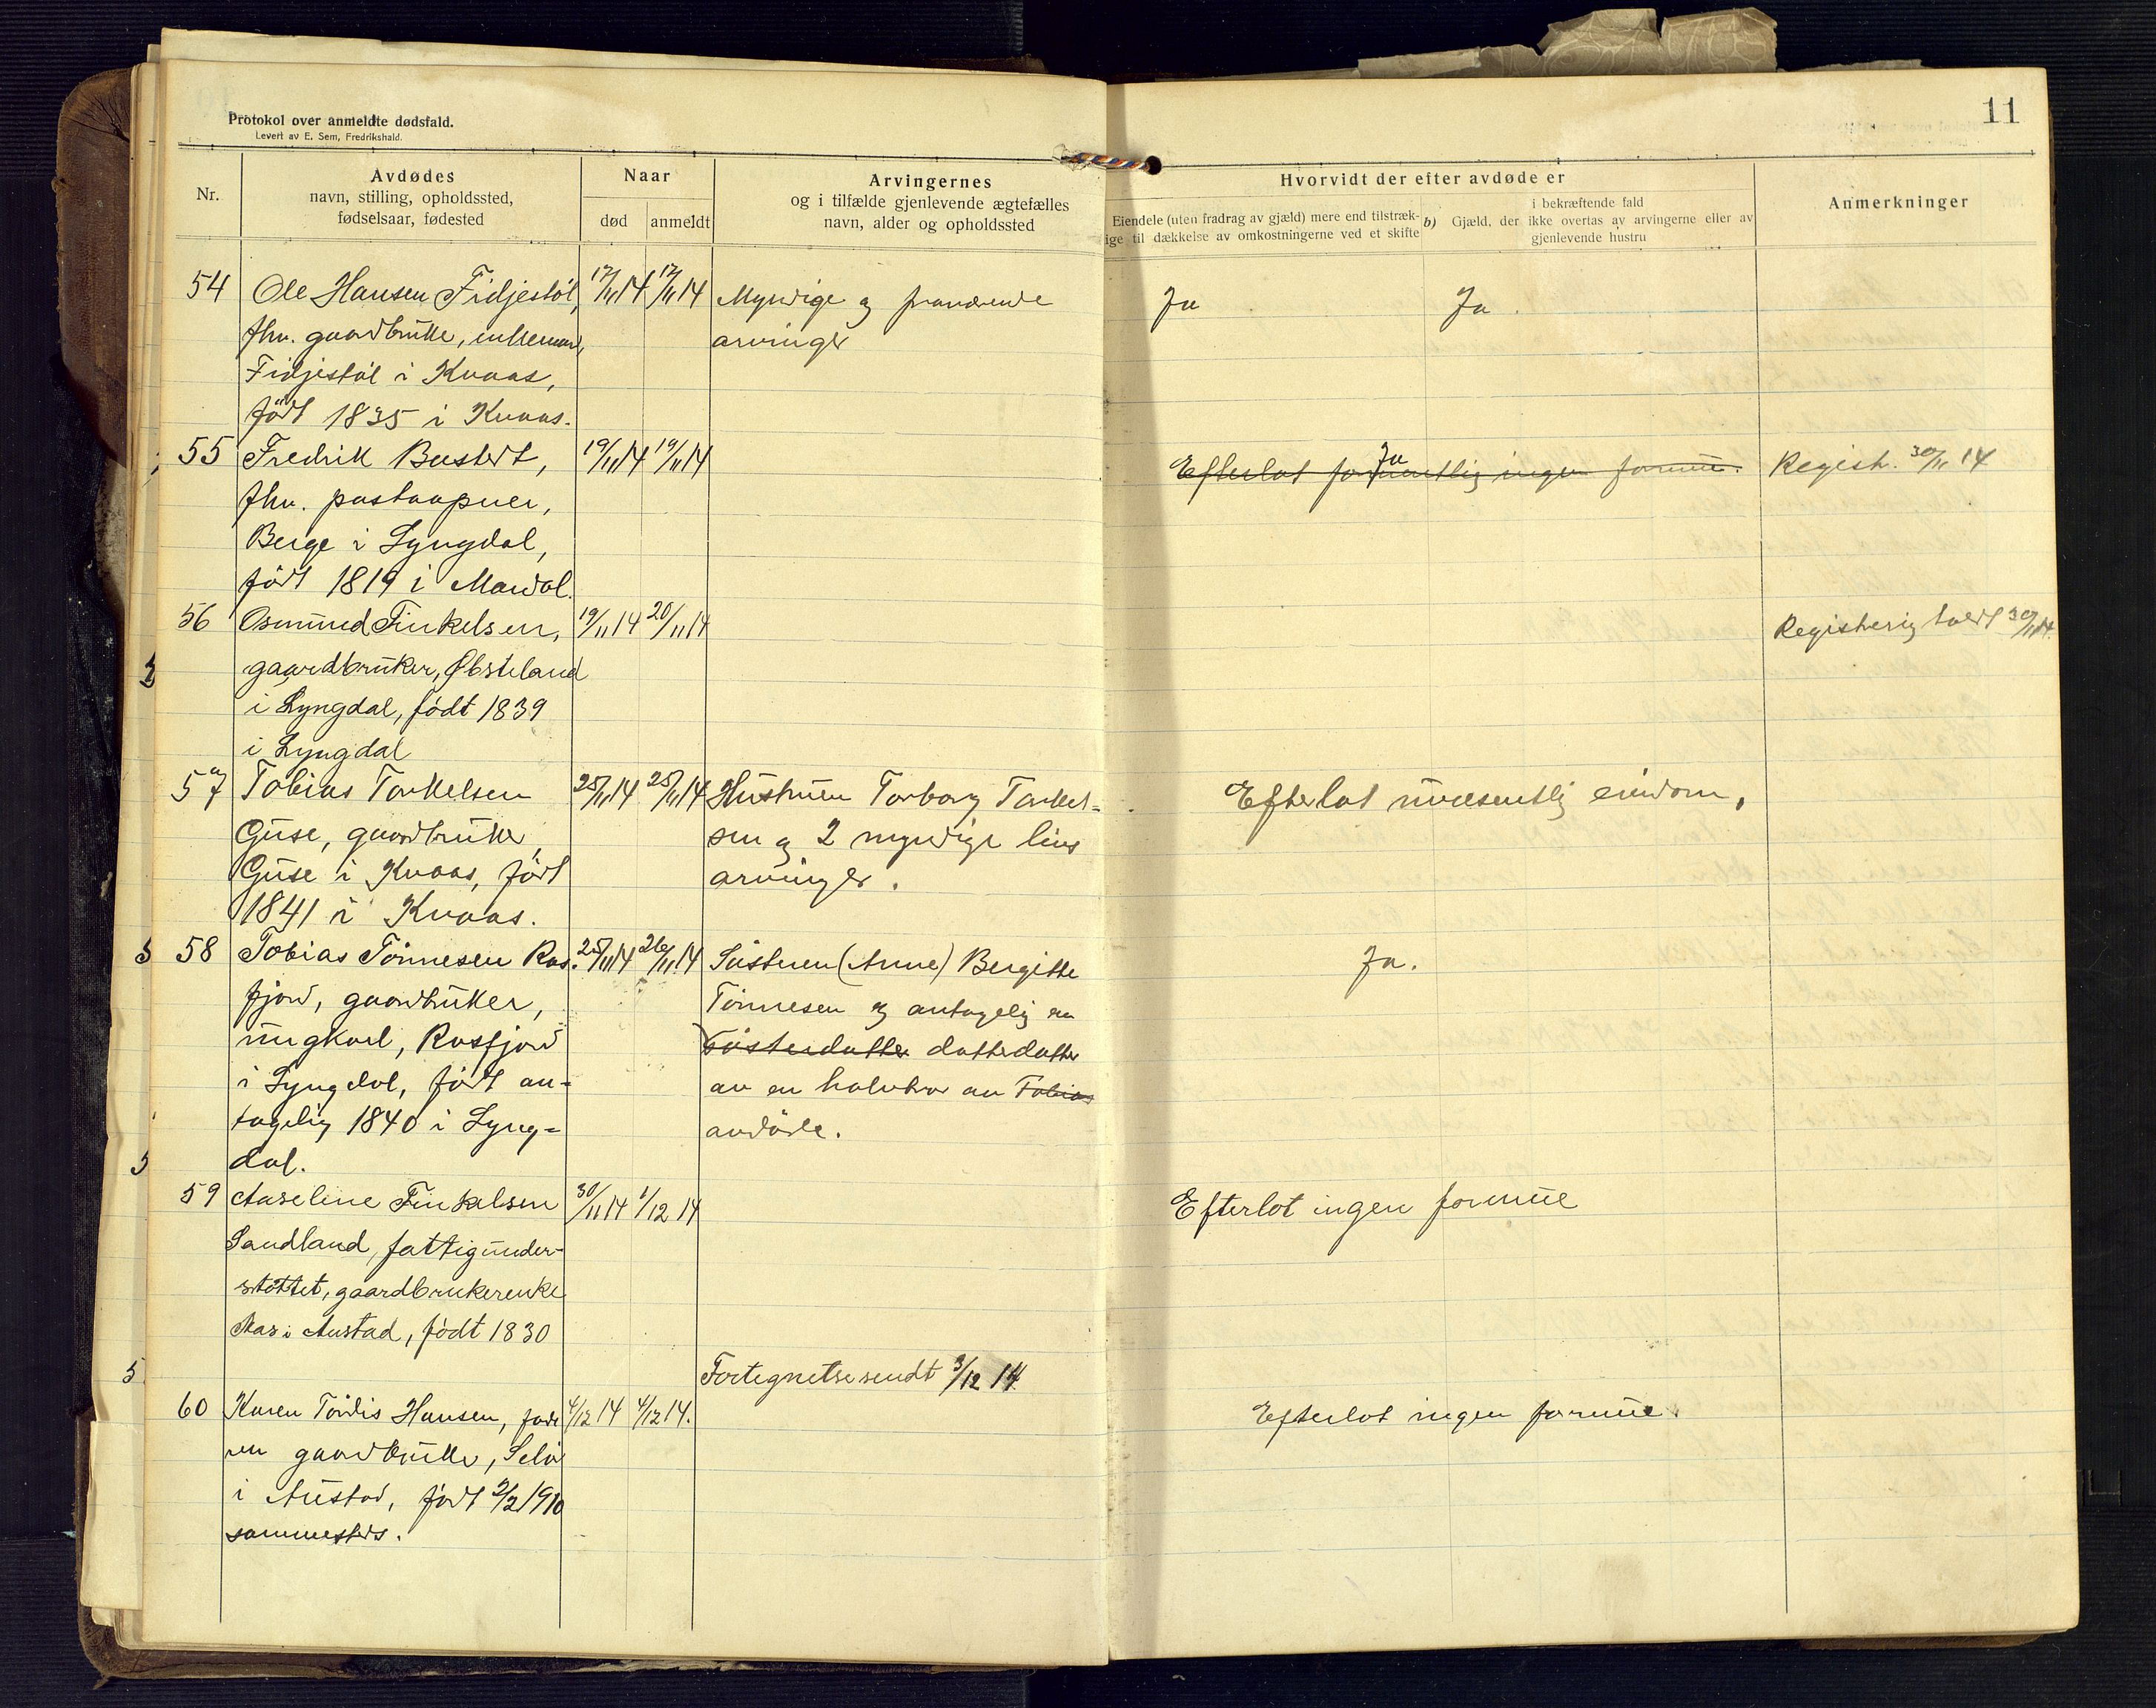 Protokol over anmeldte dødsfald.
Levert av E. Sem, Fredrikshald.
11
Nr.
Avdødes
navn, stilling, opholdssted,
fødselsaar, fødested
Naar
død
anmeldt
Arvingernes
og i tilfælde gjenlevende ægtefælles
navn, alder og opholdssted
Hvorvidt der efter avdøde er
Eiendele (uten fradrag av gjæld) mere end tilstræk-
ige til dækkelse av omkostningerne ved et skifte
b) Gjæld, der
i bekræftende fald
ikke overtas av arvingerne eller av
gjenlevende hustru
Anmerkninger
54 Ole Hansen Fidjestøl, 17/11 14 17/11 14 Myndige og fraværende Ja Ja.
fhv. gaardbruker, enkemand, arvinger
Fidjestøl i Kvaas,
född 1835 i Kvaas.
55 Fredrik Bustert, 19/11 14 19/11 14 Efterlot formentlig ingen formue. Ja Regist. 30/11 14
fhv. postaapner,
Berge i Lyngdal,
född 1819 i Mandal.
56 Osmund Tinkelsen, 19/11 14 20/11 14 Registrering holdt 30/11 14.
gaardbruker, Øbsteland
i Lyngdal, födt 1839
i Lyngdal
57 Tobias Torkelsen 25/11 14 25/11 14 Hustruen Torborg Torkel= Efterlot uvæsentlig eiendom.
Guse, gaardbruker, sen og 2 myndige livs
Guse i Kvaas, födt arvinger.
1841 i Kvaas.
58 Tobias Tönnesen Ros= 25/11 14 26/11 14 Söstren (Anne) Bergitte Ja.
fjord, gaardbruker, Tönnesen og antagelig en
ungkarl, Rosfjord sösterdatter datterdatter
i Lyngdal, födt an= av en halvbror av Tobias
tagelig 1840 i Lyng= avdöde.
dal.
59 Aaseline Tinkelsen 30/11 14 1/12 14 Efterlot ingen formue
Sandland, fattigunder-
støttet, gaardbrukerenke
i Austad, födt 1830
Fortegnelse sendt 3/12 14
60 Karen Tördis Hansen, 4/12 14 4/12 14. Efterlot ingen formue.
gaardbruker, Selö
i Austad, födt 2/2 1910
sammesteds.